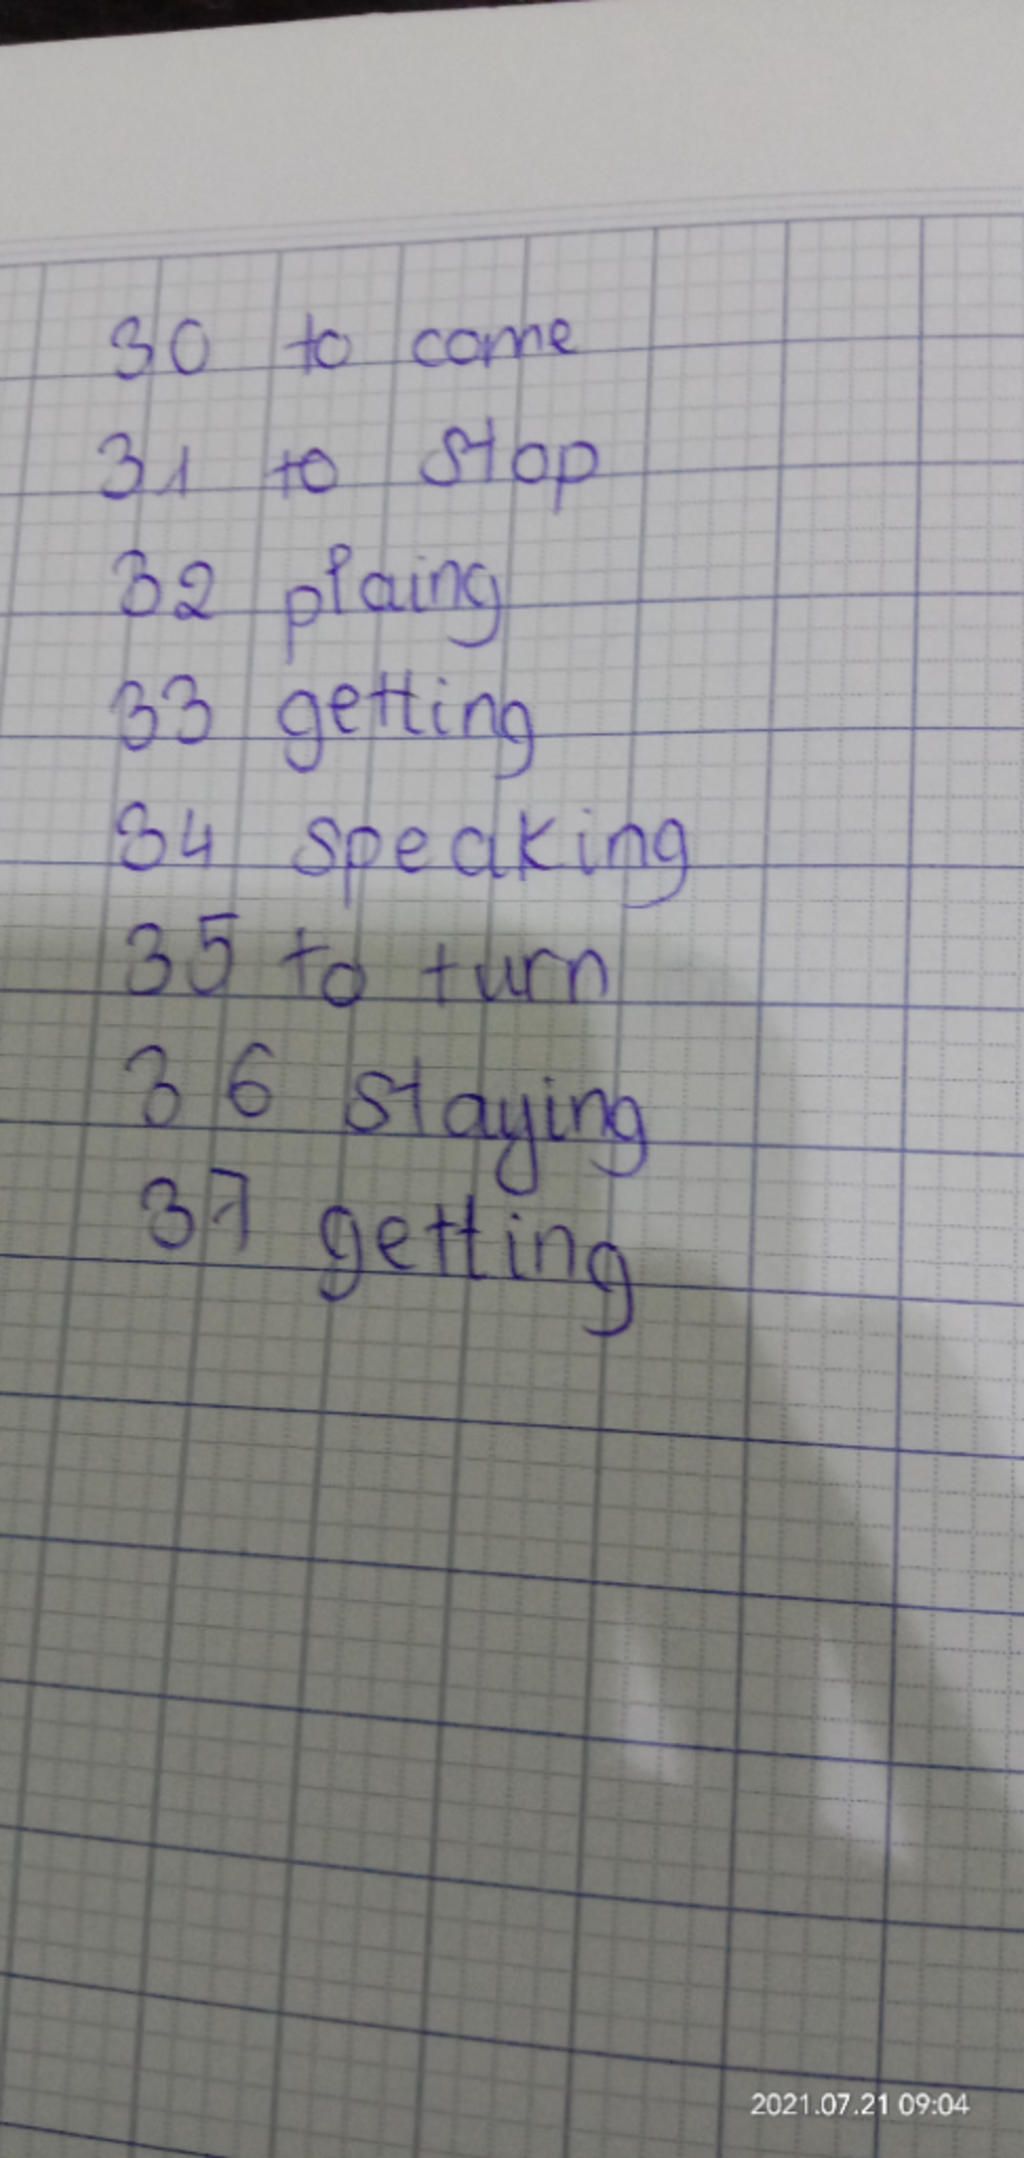 30 to come
31 to stop
32 plaing
33 getting
34 speaking
35 to turn
36 staying
37 getting
2021.07.21 09:04